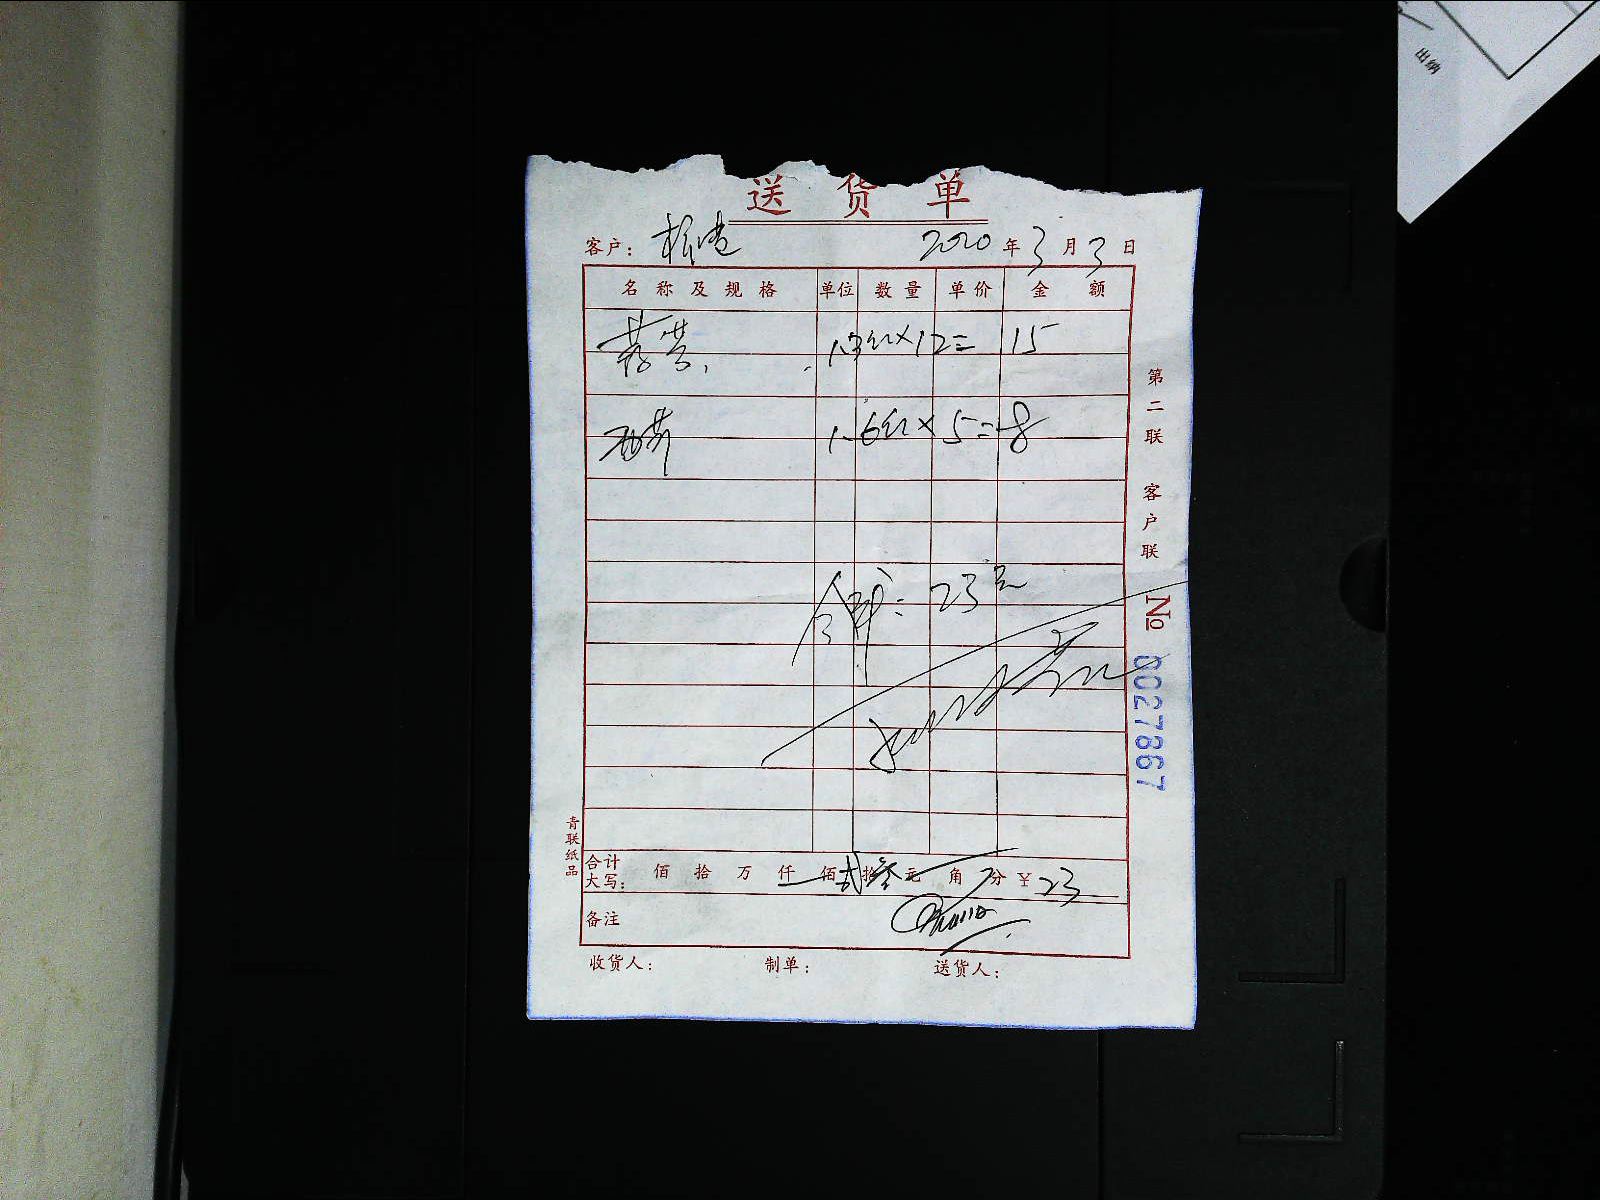 出纳
送货单
客户： 2020年3月3日
名称及规格 单位 数量 单价 金额
1.3斤×12= 15
西芹 1.6斤×5= 8
合计: 23元
第二联 客户联
№ 0027867
青联纸品
合计大写： 佰 拾 万 仟 佰 贰 拾 叁 元 角 分 ￥23
备注
收货人： 制单： 送货人：